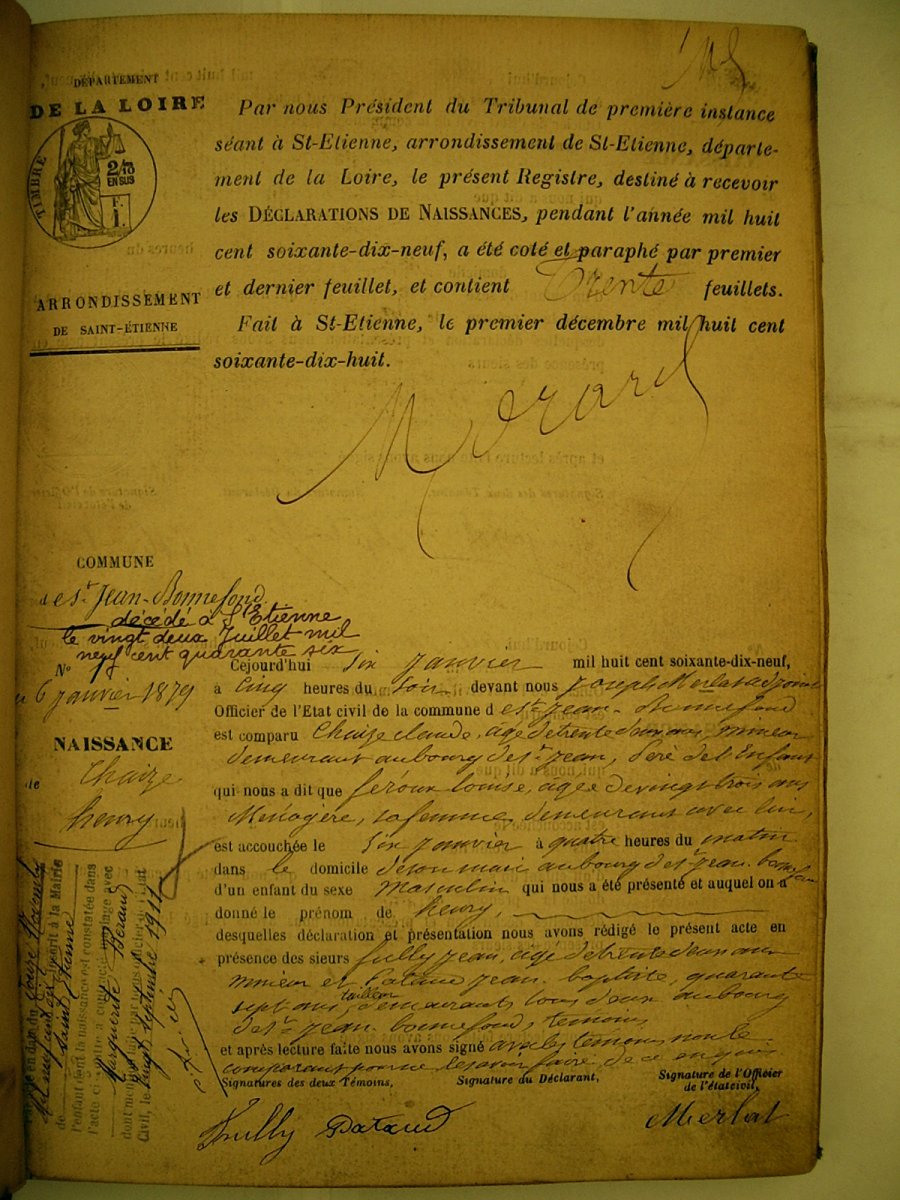 DÉPARTEMENT
DE LA LOIRE
TIMBRE
2/10
EN SUS
F.
1.
ARRONDISSEMENT
DE SAINT-ÉTIENNE
Par nous Président du Tribunal de première instance
séant à St-Etienne, arrondissement de St-Etienne, départe-
ment de la Loire, le présent Registre, destiné à recevoir
les DÉCLARATIONS DE NAISSANCES, pendant l'année mil huit
cent soixante-dix-neuf, a été coté et paraphé par premier
et dernier feuillet, et contient Trente feuillets.
Fait à St-Etienne, le premier décembre mil huit cent
soixante-dix-huit.
COMMUNE
de St Jean-Bonnefond
décédé à St Etienne
le vingt deux Juillet mil
neuf cent quarante six
N° 1
6 janvier 1879
NAISSANCE
de Chaize
henry
Cejourd'hui Six janvier mil huit cent soixante-dix-neuf,
à Cinq heures du Soir devant nous joseph Merlat adjoint
Officier de l'Etat civil de la commune de St jean-Bonnefond
est comparu Chaize claude, agé de trente deux ans, mineur
demeurant au bourg de St jean, Père de l'Enfant
qui nous a dit que louise, agée de vingt trois ans
Ménagère, sa femme, demeurant avec lui,
est accouchée le Six janvier à quatre heures du matin
dans le domicile de son mari au bourg de St jean bonnefond
d'un enfant du sexe Masculin qui nous a été présenté et auquel on a
donné le prénom de henry,
desquelles déclaration et présentation nous avons rédigé le présent acte en
présence des sieurs jean, agé de trente deux ans
mineur et jean baptiste, quarante
sept ans, tailleur demeurants tous deux au bourg
de St jean bonnefond, témoins
et après lecture faite nous avons signé avec les témoins non le
comparant pour ne le savoir faire de ce enquis
Signatures des deux Témoins, Signature du Déclarant, Signature de l'Officier
de l'état civil,
Merlat
en date du Onze Novembre
inscrit à la Mairie
de Saint Etienne
l'enfant dont la naissance est constatée dans
l'acte ci-contre a contracté mariage avec
Marguerite
Civil, le vingt septembre 1911